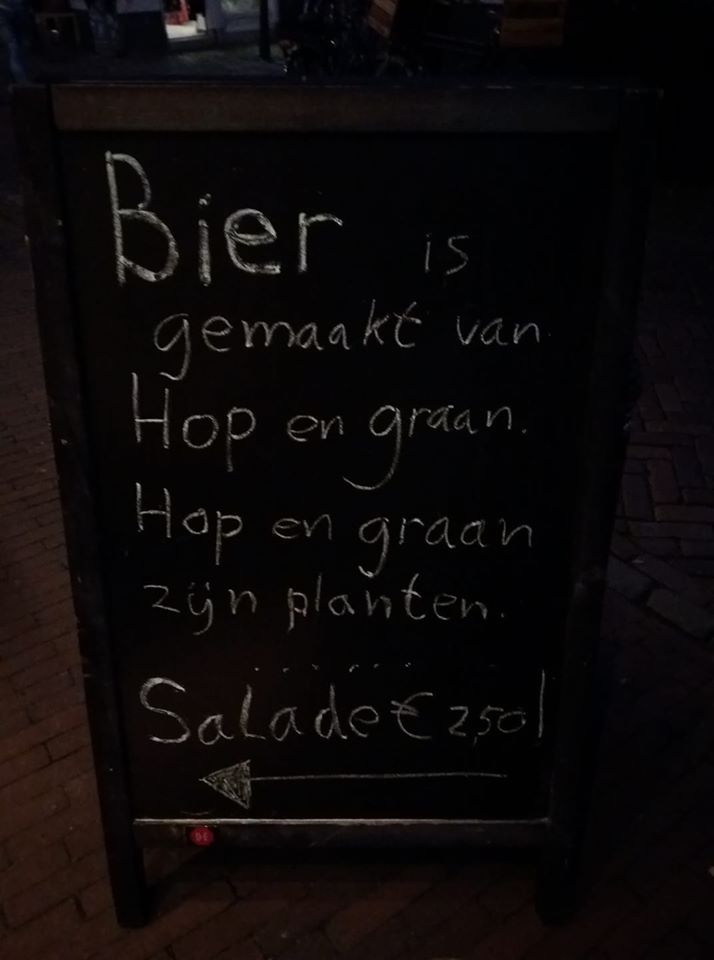 Bier is
gemaakt van
Hop en graan.
Hop en graan
zijn planten.
.......
Salade € 2,50!